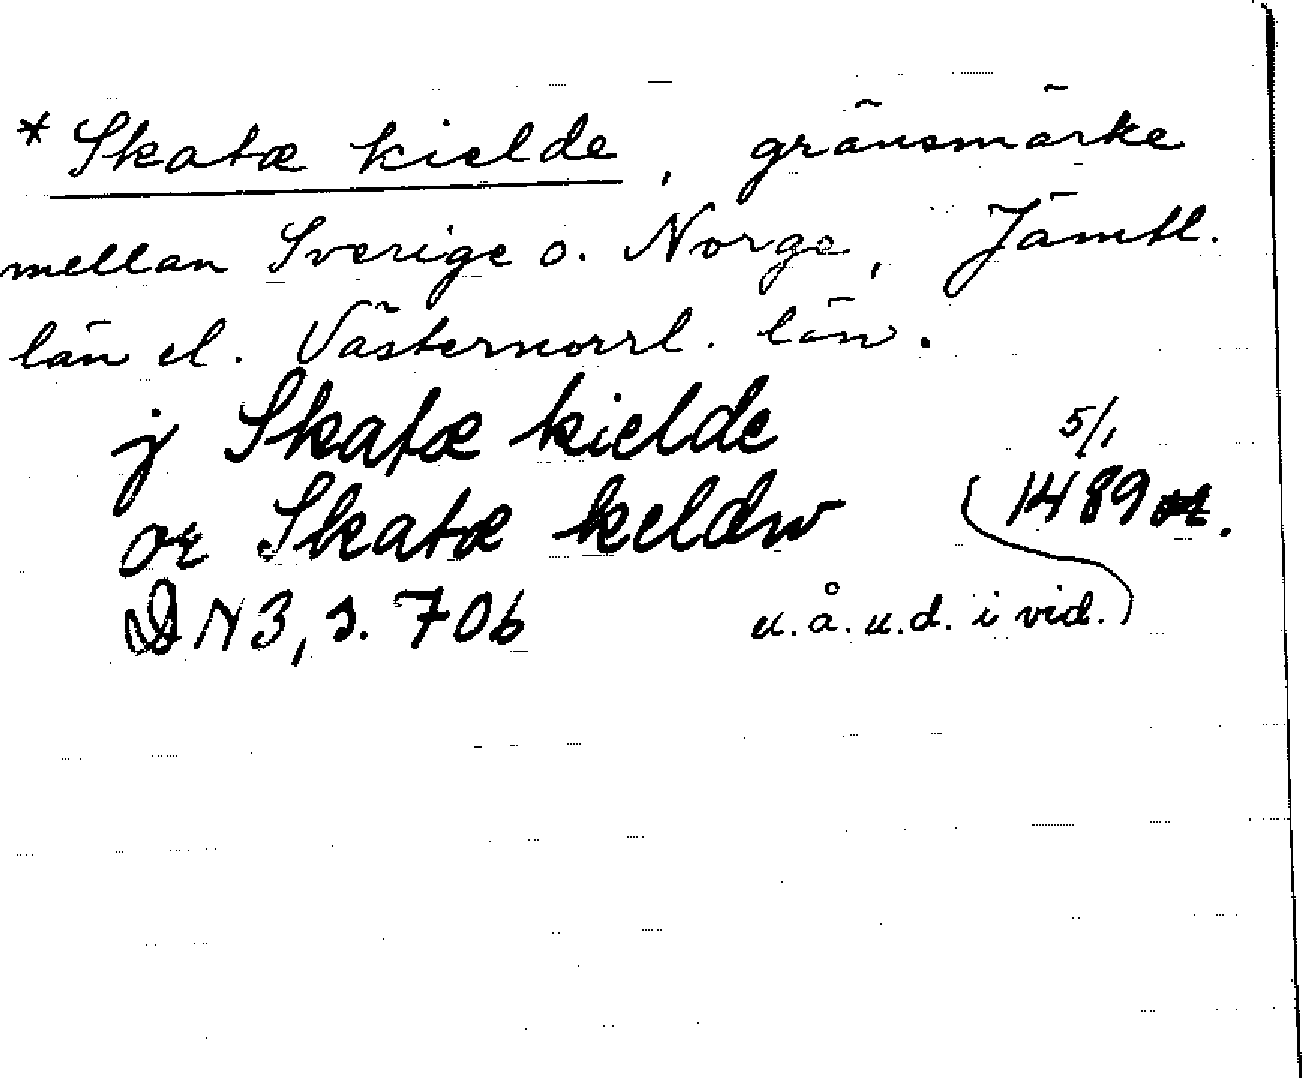 *Skatæ kielde, gränsmärke
mellan Sverige o. Norge, Jämtl.
län el. Västernorrl. län.
j Skatæ kielde 5/1
oc Skatæ keldw (1489
DN 3, s. 706 u.å.u.d. i vid.)